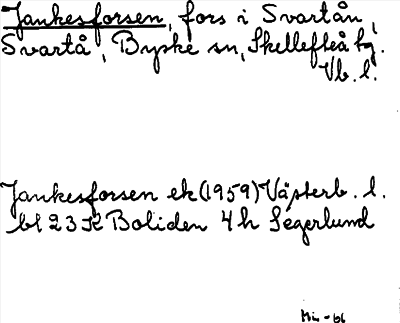 Jankesforsen, fors i Svartån,
Svartå, Byske sn, Skellefteå tg.
Vb. l.
Jankesforsen ek (1959) Västerb. l.
bl 23 K Boliden 4 h Segerlund